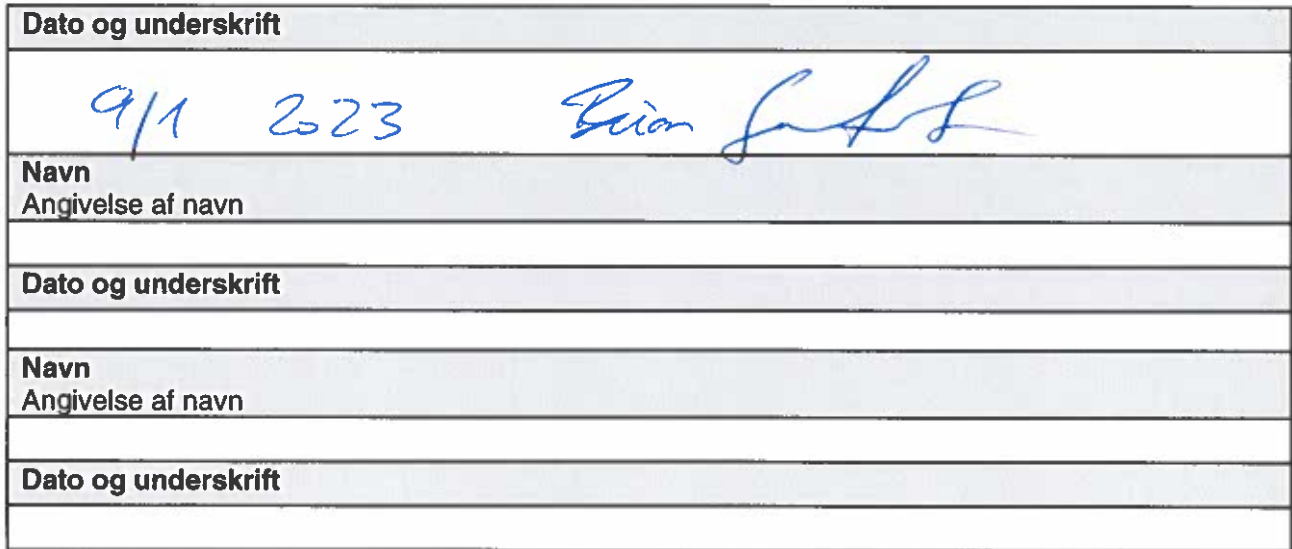 Dato og underskrift
9/1 2023 Brian
Navn
Angivelse af navn
Dato og underskrift
Navn
Angivelse af navn
Dato og underskrift